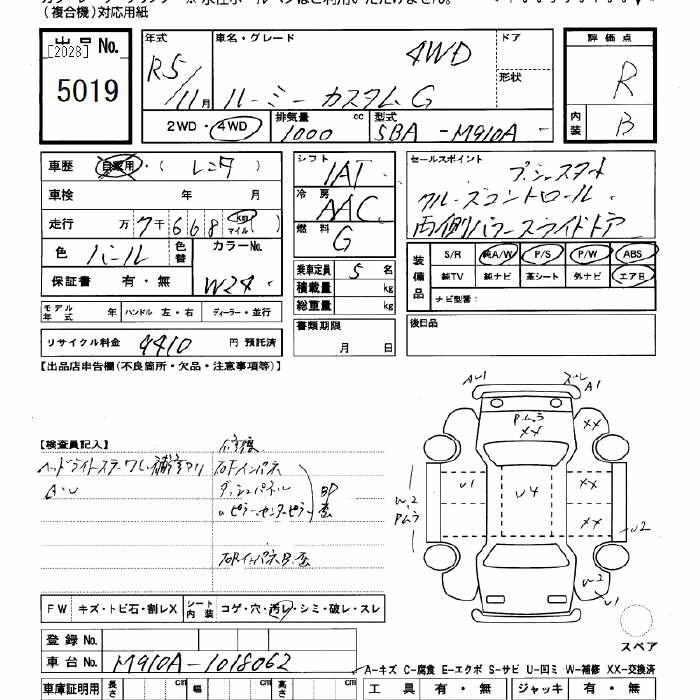 (複合機)対応用紙
出品 No.
[2028]
5019
年式
R5/11月
車名・グレード
4WD
ルーミー カスタム G
ドア
形状
2WD・4WD
排気量 cc
1000
型式
5BA-M910A
評価点
R
内装
B
車歴 自家用・( レンタ )
車検 年 月
走行 万 7千668 km マイル( )
色 パール 色替 カラーNo.
W24
保証書 有・無
シフト
IAT
冷房
AAC
燃料
G
乗車定員 5 名
積載量 kg
総重量 kg
セールスポイント
プッシュスタート
クルーズコントロール
両側パワースライドドア
装備品
S/R 純A/W P/S P/W ABS
純TV 純ナビ 革シート 外ナビ エアB
ナビ型番:
モデル年式 年 ハンドル 左・右 ディーラー・並行
書類期限
月 日
後日品
リサイクル料金 4410 円 預託済
【出品店申告欄(不良箇所・欠品・注意事項等)】
AU1 ズレ A1
P.ムラ
XX XX
【検査員記入】 修復
ヘッドライトステー 右Fインパネ
A・U ダッシュパネル
〃ピラー・センターピラー
BP歪
右Rインパネ
U1 U4 XX
W2
P.ムラ XX
U2
W2
U1
FW キズ・トビ石・割レX シート内装 コゲ・穴・汚レ・シミ・破レ・スレ
スペア
登録 No.
車台 No. M910A-1018062
A-キズ C-腐食 E-エクボ S-サビ U-凹ミ W-補修 XX-交換済
車庫証明用 長さ cm 幅 cm 高さ cm
工具 有・無 ジャッキ 有・無